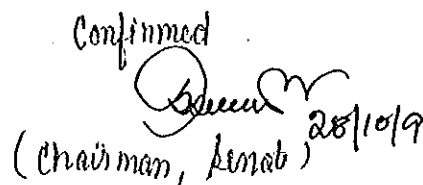 Confirmed
28/10/9
(Chairman, Senate)